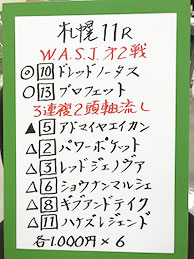 札幌11R
W.A.S.J.第2戦
◎10ドレッドノータス
○13プロフェット
3連複2頭軸流し
▲5アドマイヤエイカン
△2パワーポケット
△3レッドジェノヴァ
△6ショウナンマルシェ
△8ギブアンドテイク
△11ハギノレジェンド
各1.000円×6